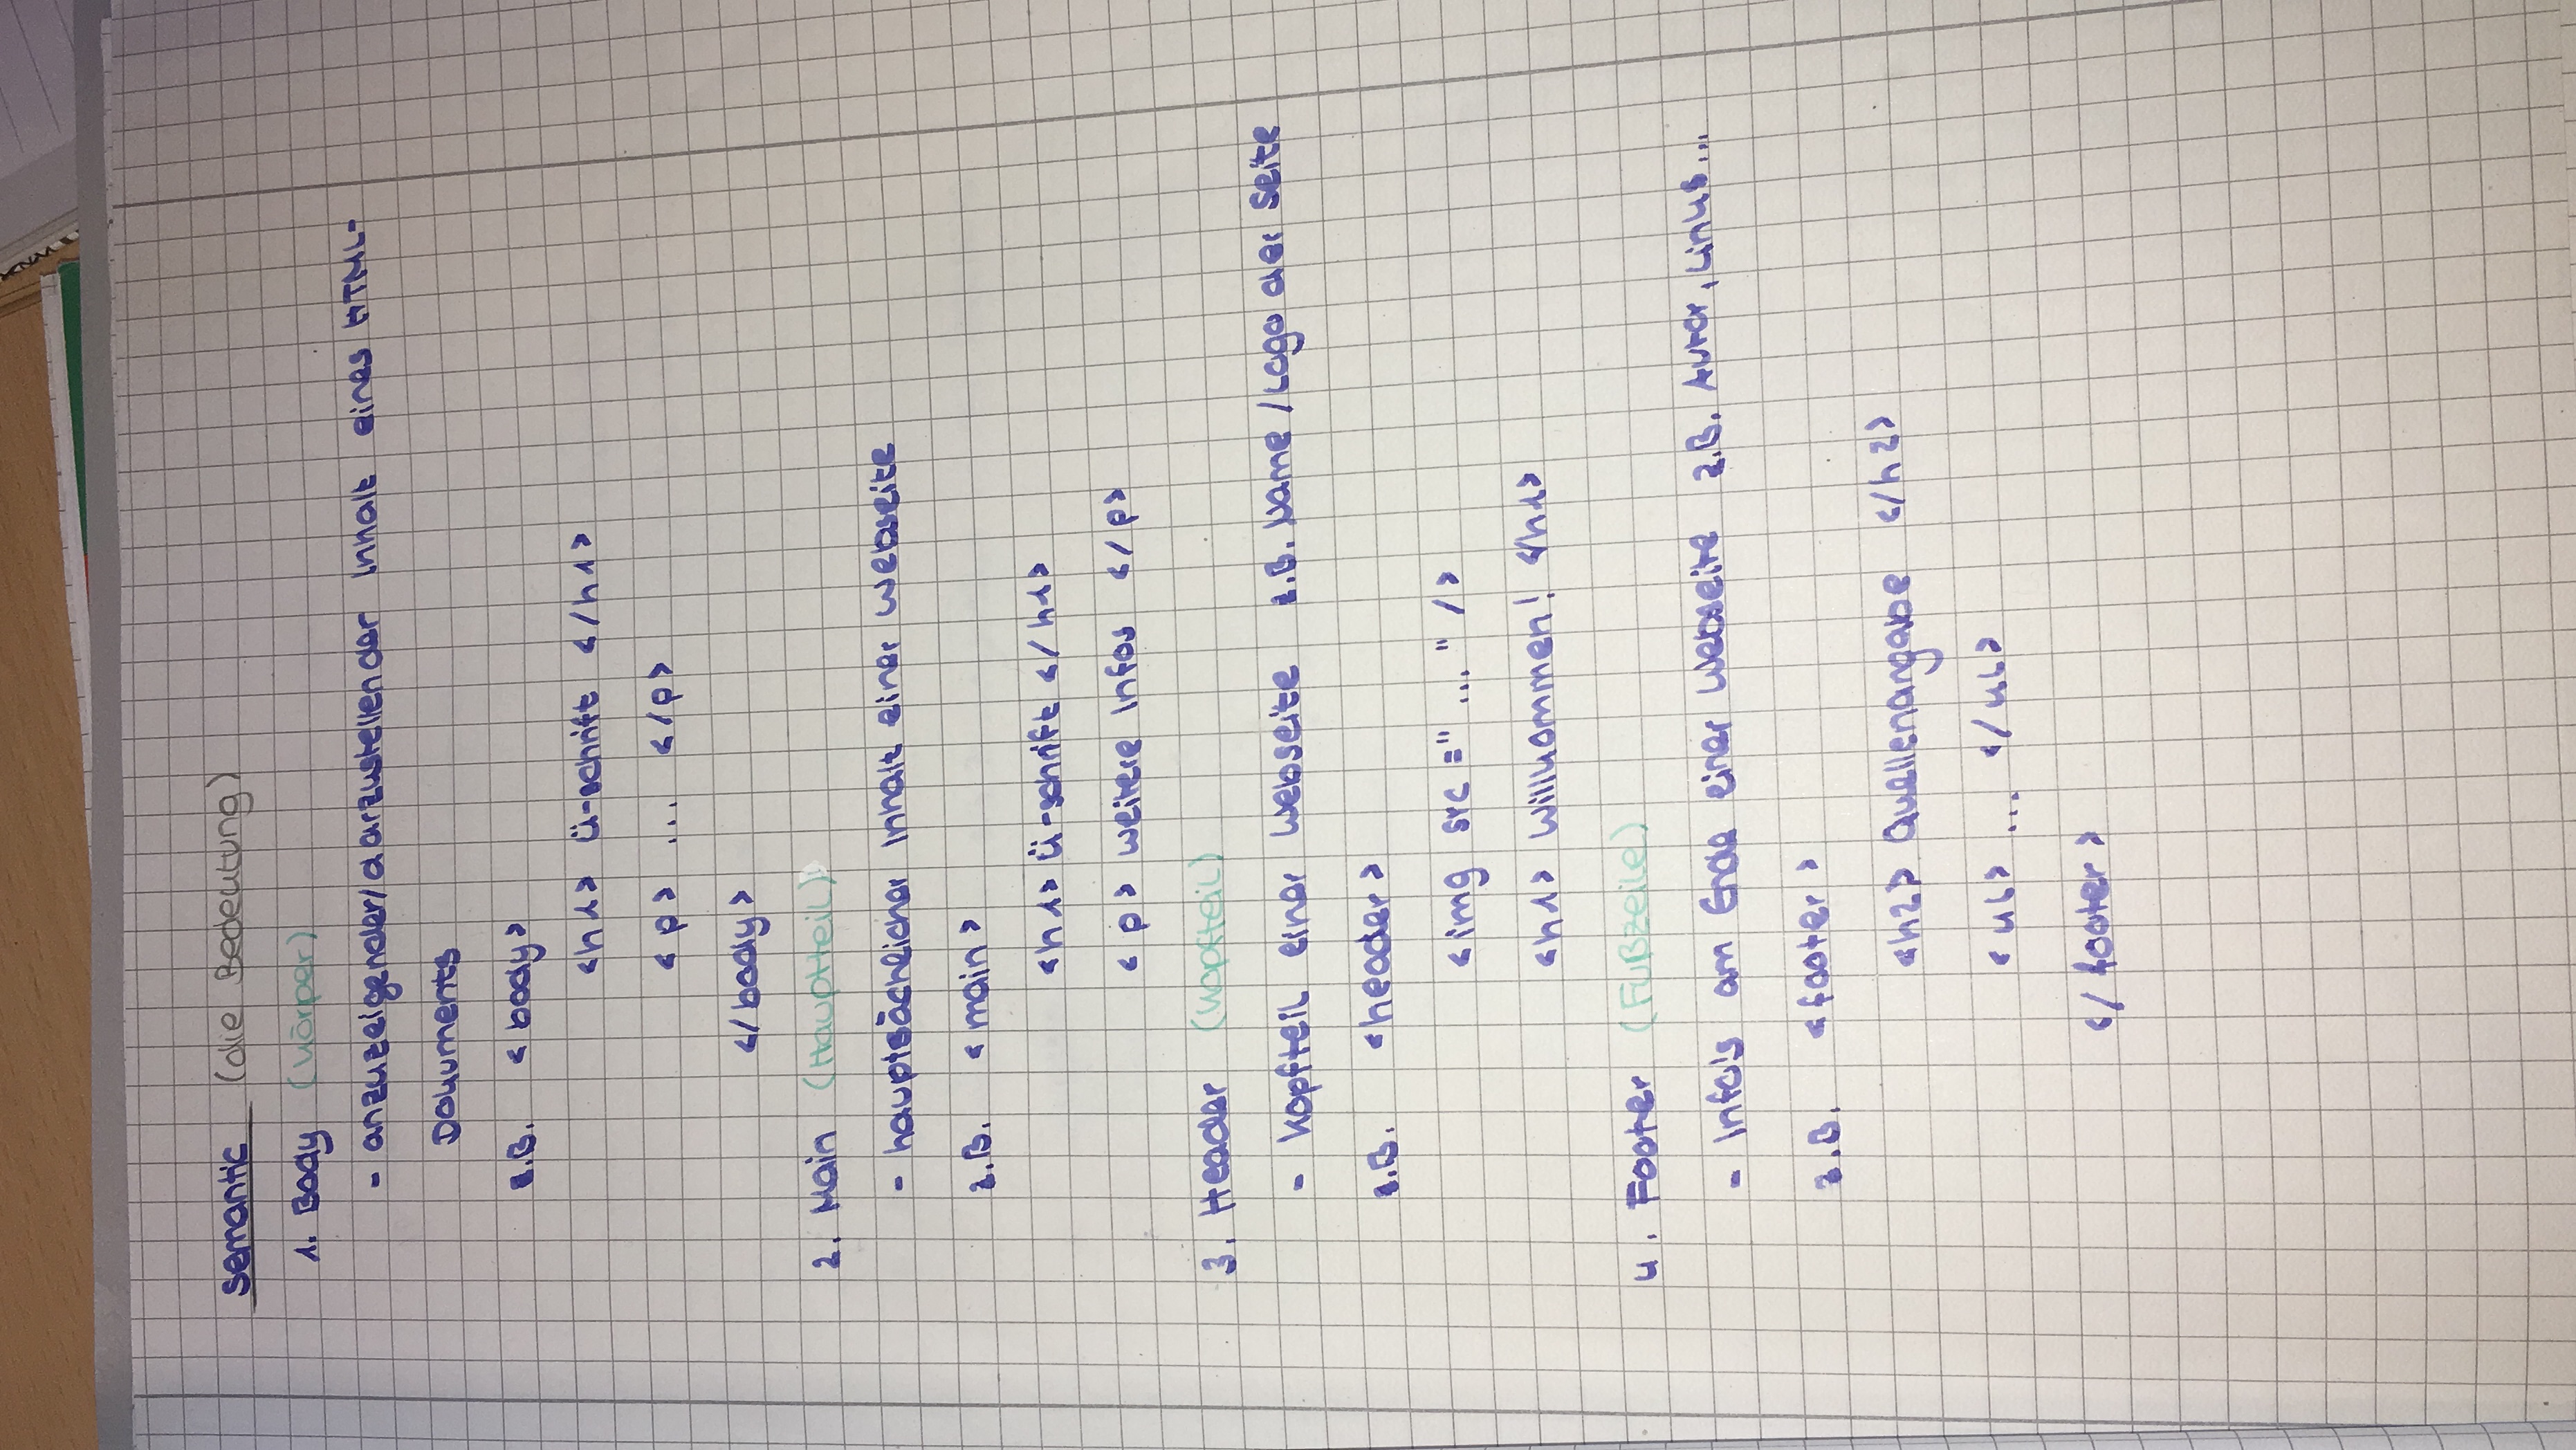 Semantic (die Bedeutung)
1. Body (Körper)
- anzuzeigender/darzustellender Inhalt eines HTML-
Dokuments
z.B. <body>
<h1> Ü-schrift </h1>
<p> ... </p>
</body>
2. Main (Hauptteil)
- hauptsächlicher Inhalt einer Webseite
z.B. <main>
<h1> Ü-schrift </h1>
<p> weitere Infos </p>
3. Header (Kopfteil)
- Kopfteil einer Webseite z.B. Name/Logo der Seite
z.B. <header>
<img src="..." />
<h1> Willkommen! </h1>
4. Footer (Fußzeile)
- Info's am Ende einer Webseite z.B. Autor, Links...
z.B. <footer>
<h2> Quellenangabe </h2>
<ul> ... </ul>
</footer>